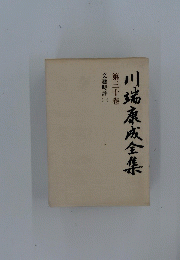 川端康成全集
第三十巻
文藝時評